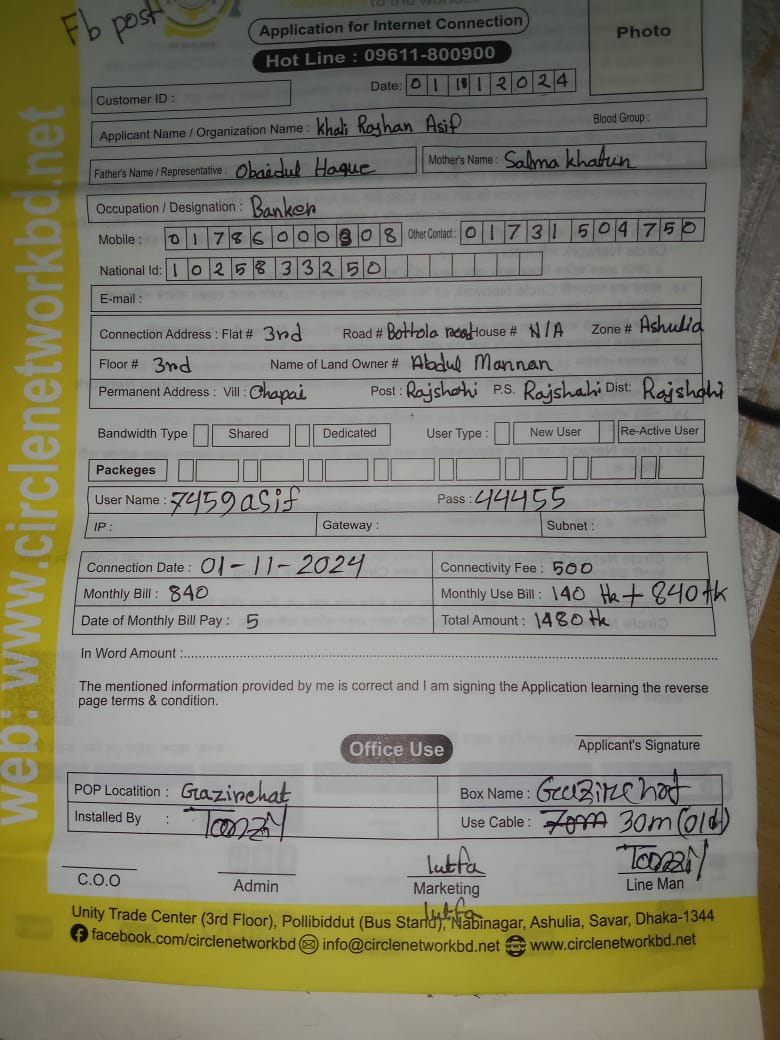 Fb post
Application for Internet Connection
Hot Line : 09611-800900
Photo
Date: 01 11 2024
Customer ID :
Applicant Name / Organization Name : Khali Rayhan Asif Blood Group :
Father's Name / Representative : Obaidul Haque Mother's Name : Salma Khatun
Occupation / Designation : Banker
Mobile : 01786000808 Other Contact : 01731504750
National Id: 1025833250
E-mail :
Connection Address : Flat # 3rd Road # Bottola road House # N/A Zone # Ashulia
Floor # 3rd Name of Land Owner # Abdul Mannan
Permanent Address : Vill : Chapai Post : Rajshahi P.S. Rajshahi Dist: Rajshahi
Bandwidth Type Shared Dedicated User Type : New User Re-Active User
Packeges
User Name : 7459asif Pass : 44455
IP : Gateway : Subnet :
Connection Date : 01-11-2024 Connectivity Fee : 500
Monthly Bill : 840 Monthly Use Bill : 140 tk + 840 tk
Date of Monthly Bill Pay : 5 Total Amount : 1480 tk
In Word Amount :
The mentioned information provided by me is correct and I am signing the Application learning the reverse
page terms & condition.
Applicant's Signature
Office Use
POP Locatition : Gazirchat Box Name : Gazirchat
Installed By : Tanzil Use Cable : 70m 30m (old)
lutfa Tanzil
C.O.O Admin Marketing Line Man
lutfa
Unity Trade Center (3rd Floor), Pollibiddut (Bus Stand), Nabinagar, Ashulia, Savar, Dhaka-1344
facebook.com/circlenetworkbd info@circlenetworkbd.net www.circlenetworkbd.net
web: www.circlenetworkbd.net